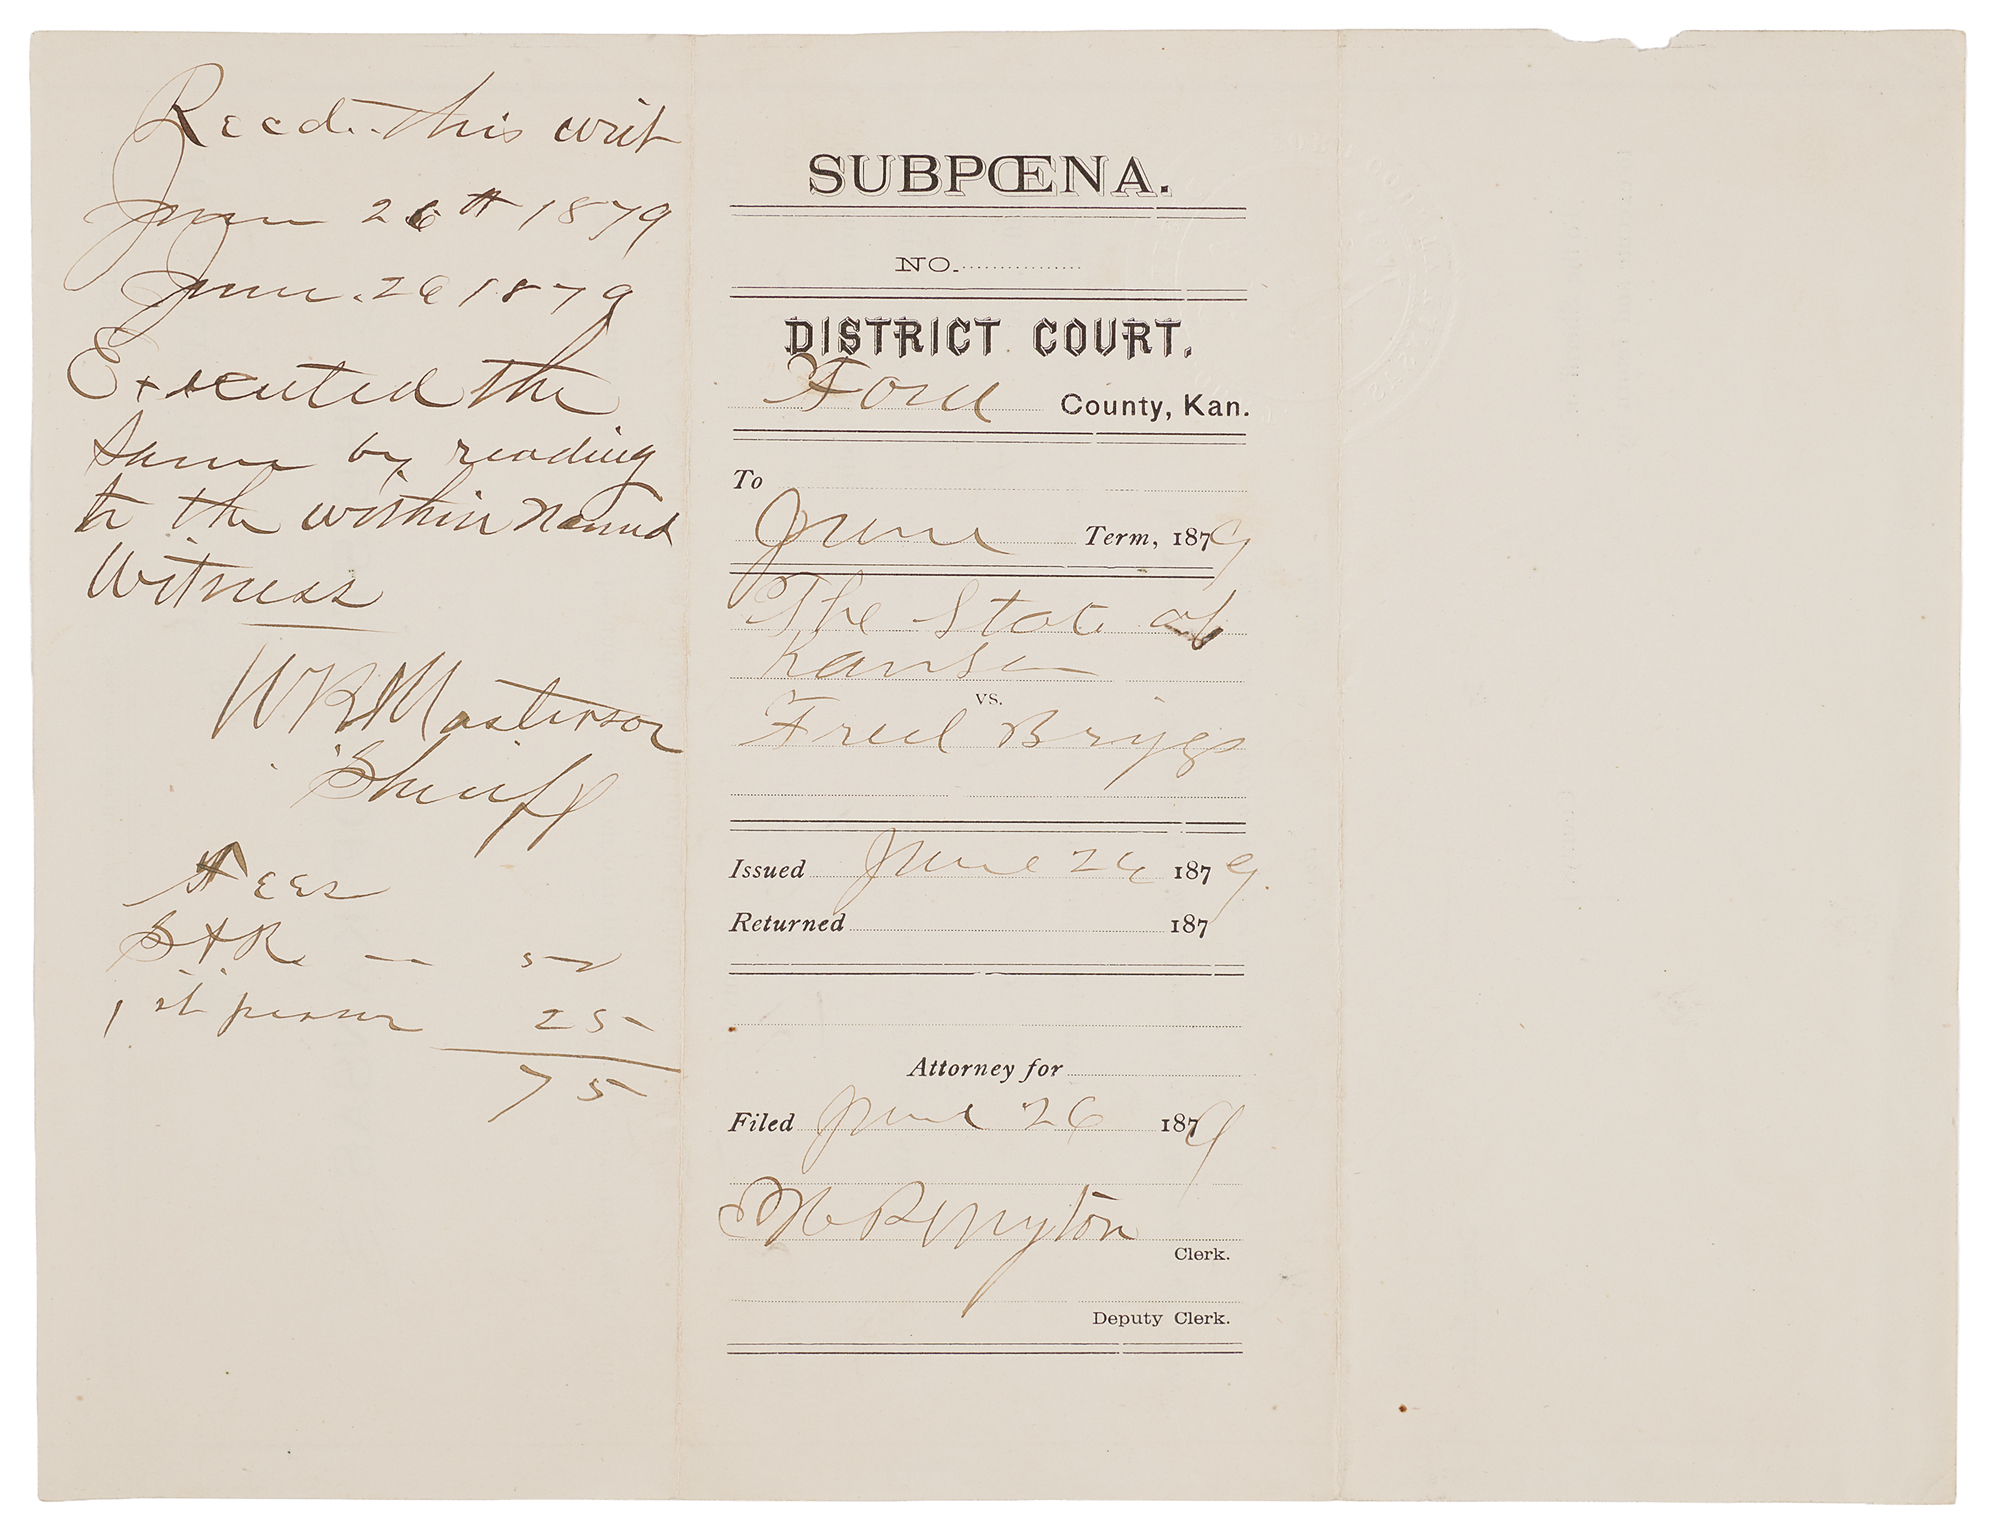 Recd. this writ
June 26th 1879
June. 26 1879
Executed the
Same by reading
to the within Named
Witness
W B Masterson
Sheriff
Fees
S & R — 50
1st person 25
75
SUBPŒNA.
NO.
DISTRICT COURT.
Ford County, Kan.
To
June Term, 1879
The State of
Kansas
vs.
Fred Briggs
Issued June 26 1879.
Returned 187
Attorney for
Filed June 26 1879
Clerk.
Deputy Clerk.